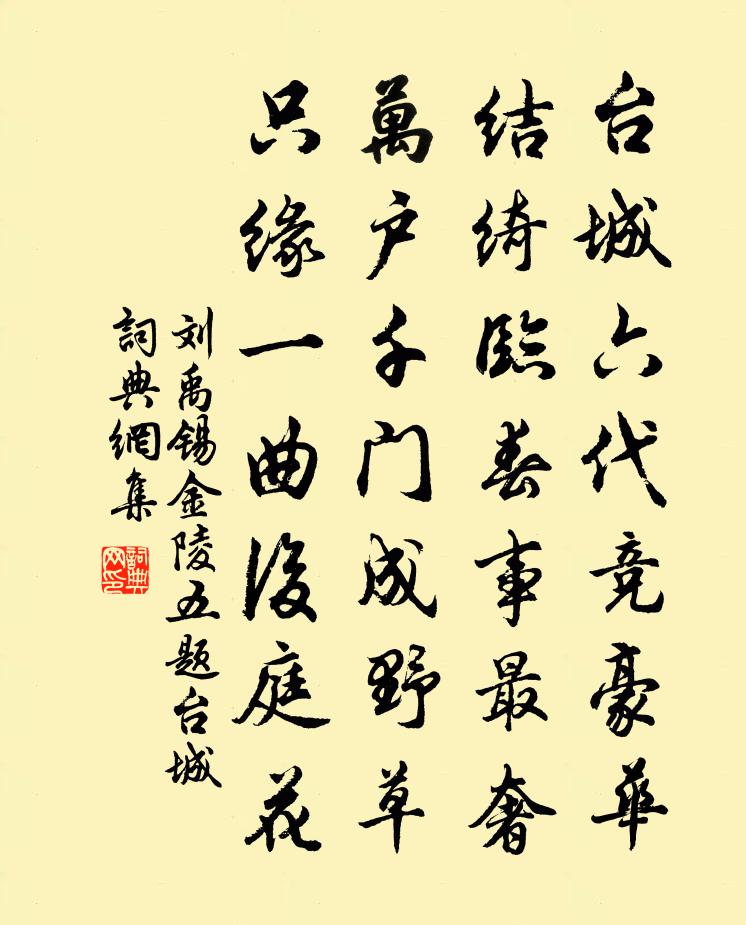 台城六代競豪華
結綺臨春事最奢
萬户千门成野草
只缘一曲後庭花
刘禹锡金陵五题台城
詞典網集
詞典网印